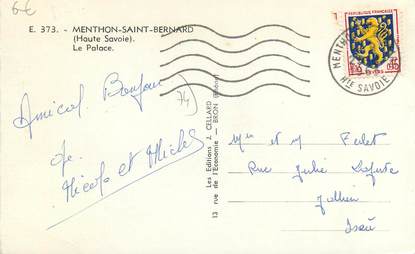 6€
E. 373. - MENTHON-SAINT-BERNARD
(Haute Savoie).
Le Palace.
RÉPUBLIQUE FRANÇAISE
MENTHON
Hte SAVOIE
74
Amical Bonjour
de
Nicole et Michel
Les Editions J. CELLARD
13 rue de l'Economie — BRON (Rhône)
Mr et Me
Rue Julie
Jallieu
Isère